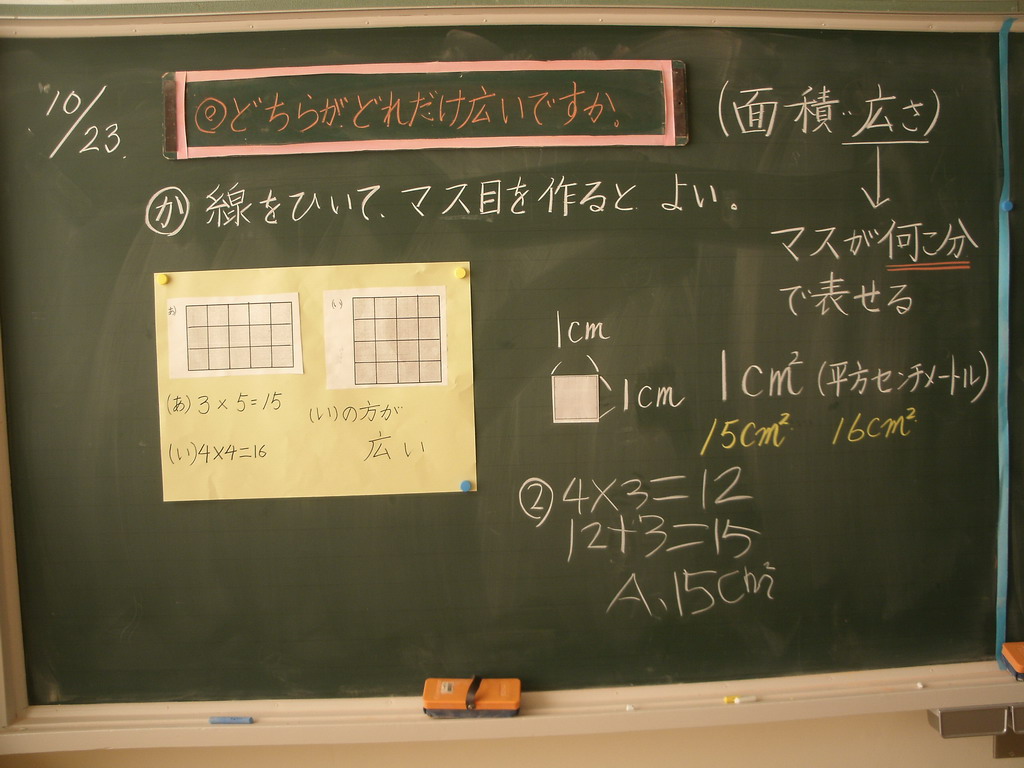 10/23.
めどちらがどれだけ広いですか。
(面積‥広さ)
か 線をひいて、マス目を作るとよい。
マスが何こ分
で表せる
あ
(い)
(あ) 3×5=15
(い) 4×4=16
(い)の方が
広い
1cm
1cm
1cm² (平方センチメートル)
15cm² 16cm²
② 4×3=12
12+3=15
A、15cm²